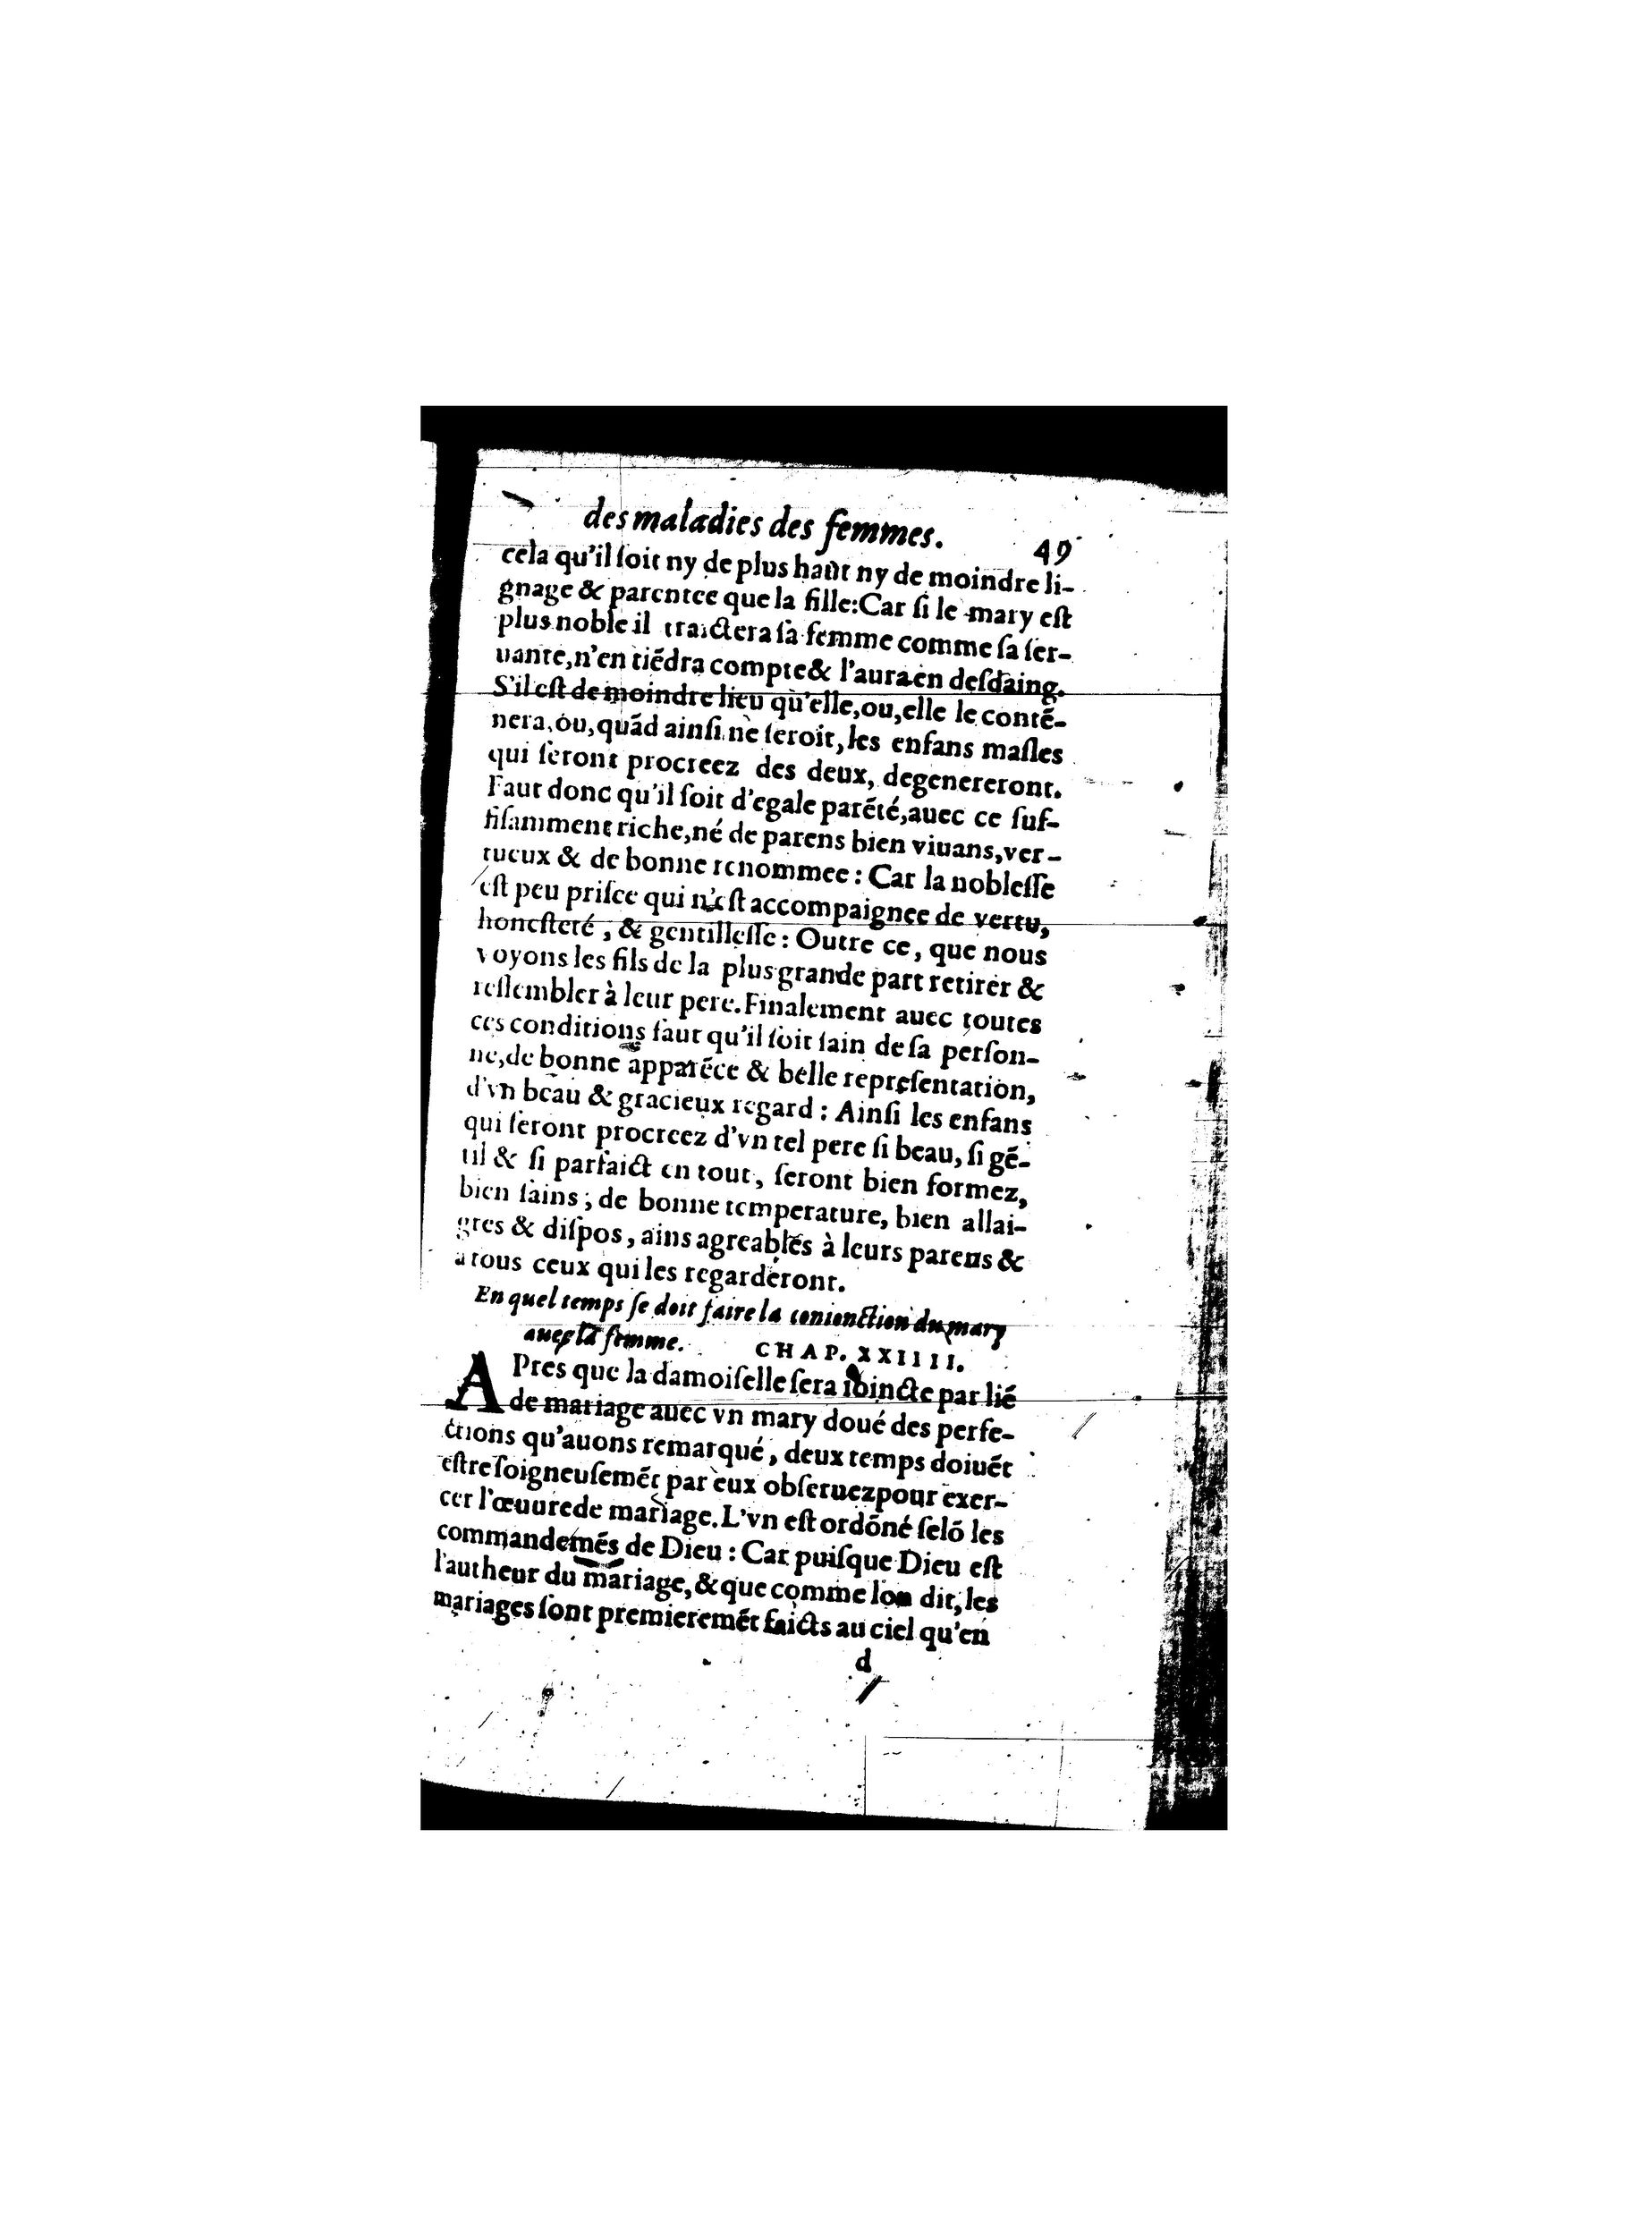 des maladies des femmes. 49
cela qu'il ſoit ny de plus haut ny de moindre li-
gnage & parentee que la fille:Car ſi le mary eſt
plus noble il traictera ſa femme comme ſa ſer-
uante,n'en tiẽdra compte & l'aura en deſdaing.
S'il eſt de moindre lieu qu'elle,ou,elle le contẽ-
nera,ou,quãd ainſi ne ſeroit, les enfans maſles
qui ſeront procreez des deux, degenereront.
Faut donc qu'il ſoit d'egale parẽté,auec ce ſuf-
fiſamment riche,né de parens bien viuans,ver-
tueux & de bonne renommee : Car la nobleſſe
eſt peu priſee qui n'eſt accompaignee de vertu,
honeſteté , & gentilleſſe : Outre ce, que nous
voyons les fils de la plus grande part retirer &
reſſembler à leur pere. Finalement auec toutes
ces conditions faut qu'il ſoit ſain de ſa perſon-
ne,de bonne apparẽce & belle repreſentation,
d'vn beau & gracieux regard : Ainſi les enfans
qui ſeront procreez d'vn tel pere ſi beau, ſi gẽ-
til & ſi parfaict en tout, ſeront bien formez,
bien ſains ; de bonne temperature, bien allai-
gres & diſpos, ains agreables à leurs parens &
a tous ceux qui les regarderont.
En quel temps ſe doit faire la conionction du mary
auec la femme. CHAP. XXIIII.
APres que la damoiſelle ſera ioincte par liẽ
de mariage auec vn mary doué des perfe-
ctions qu'auons remarqué , deux temps doiuẽt
eſtre ſoigneuſemẽt par eux obſeruez pour exer-
cer l'œuure de mariage. L'vn eſt ordõné ſelõ les
commandemẽs de Dieu : Car puiſque Dieu eſt
l'autheur du mariage, & que comme lon dit, les
mariages ſont premieremẽt faicts au ciel qu'en
d